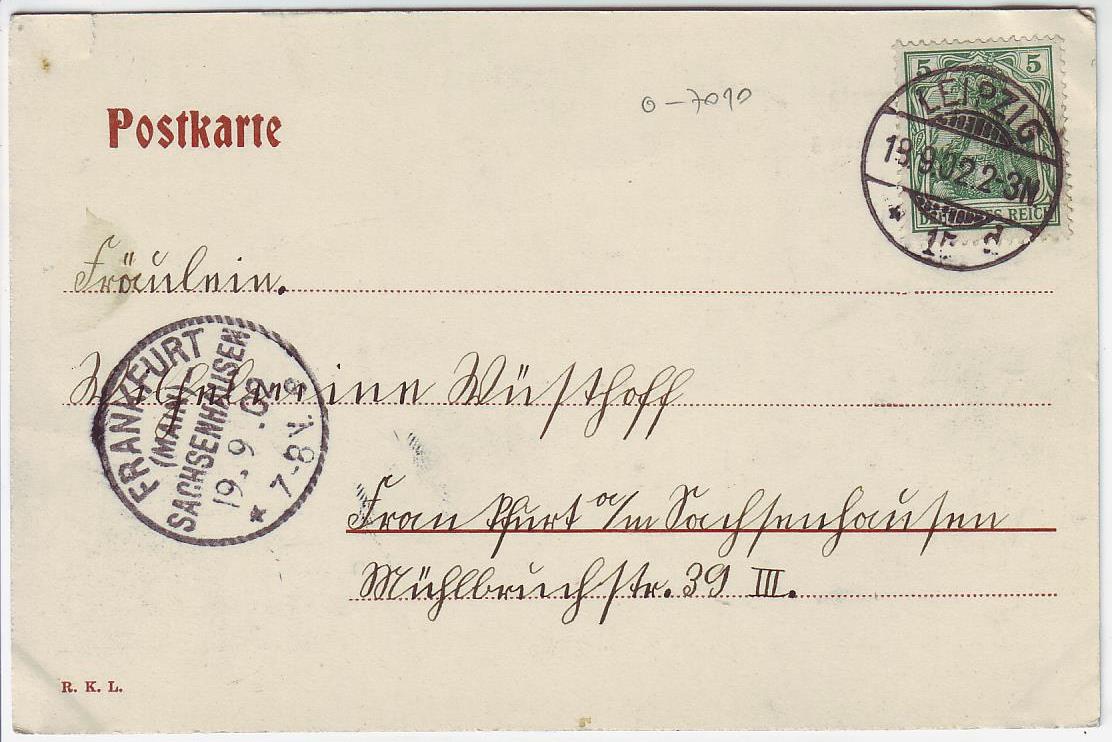 Postkarte
o-7090
5 5
DEUTSCHES REICH
LEIPZIG
18.9.02.2-3N
* 15 d
Fräulein.
Wilhelmine Wüsthoff
Frankfurt a/m Sachsenhausen
Mühlbruchstr. 39 III.
FRANKFURT
(MAIN)
SACHSENHAUSEN
19.9.02
* 7-8 N.
R. K. L.